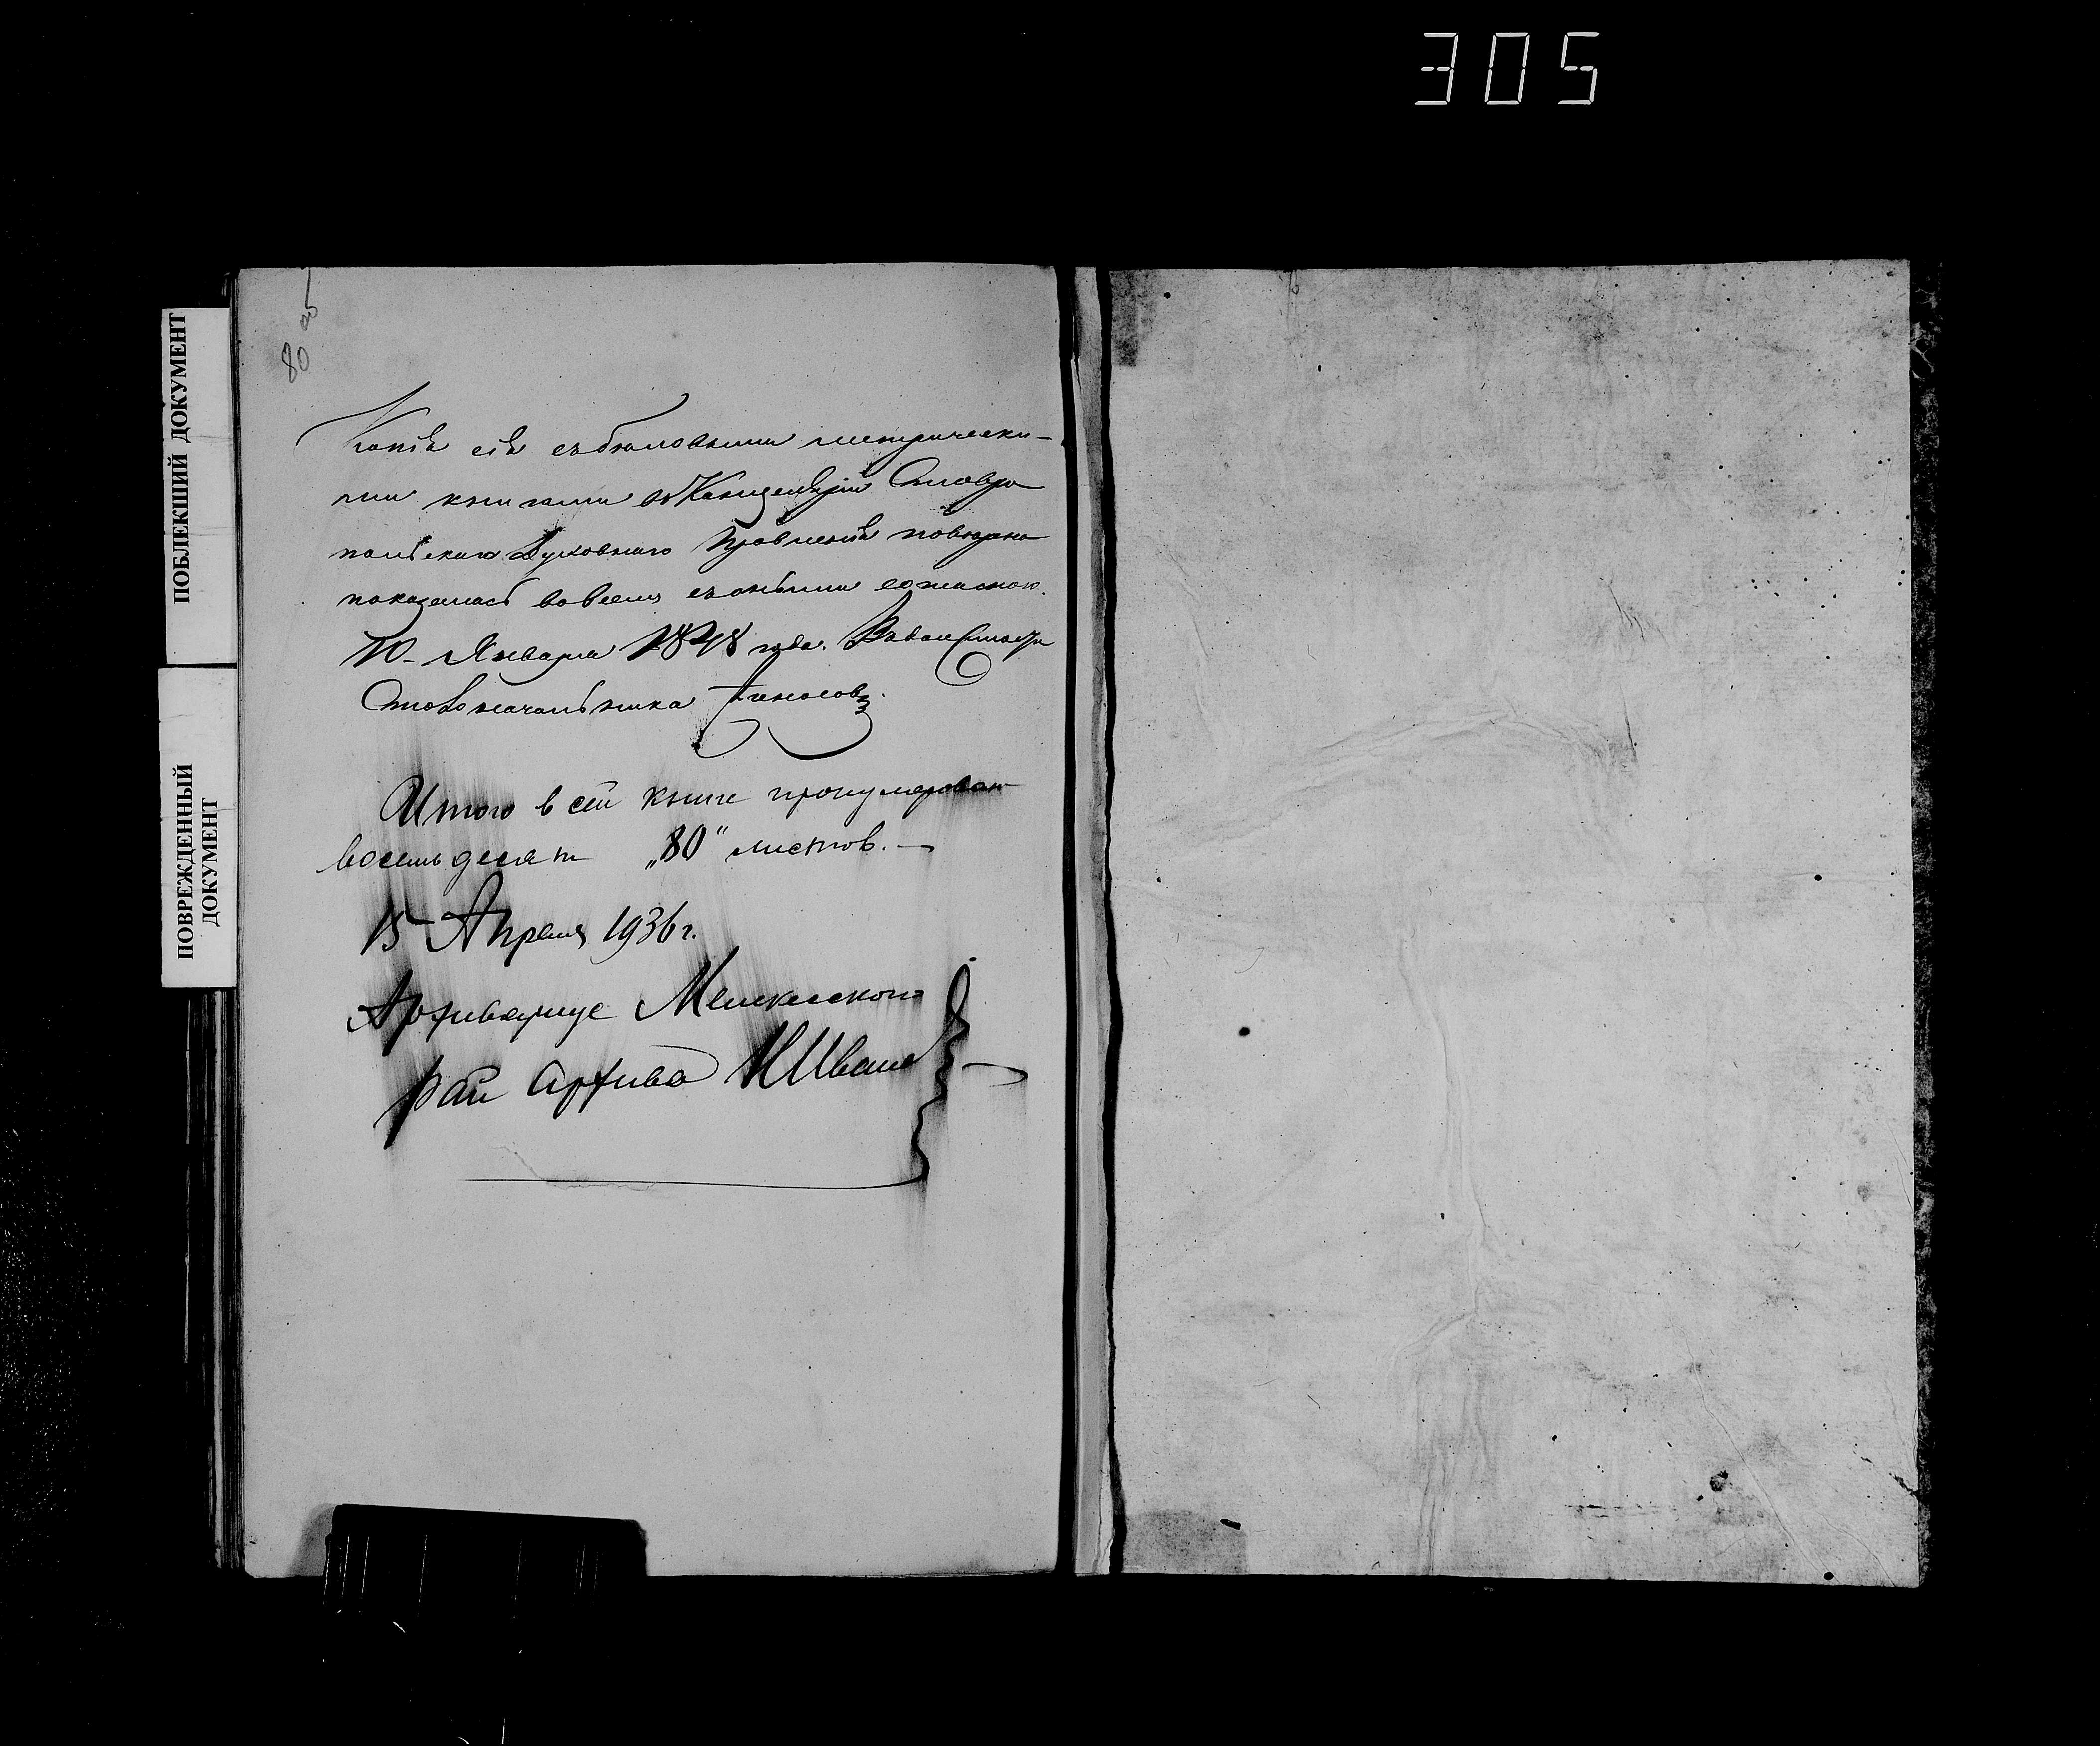 305
80 об
ПОБЛЕКШИЙ ДОКУМЕНТ
ПОВРЕЖДЕННЫЙ
ДОКУМЕНТ
Копія сія съ бѣловыми метрически-
ми книгами въ Канцеляріи Ставро
польскаго Духовнаго Правленія повѣрена
показалась во всемъ съ оными согласною.
10- Января 1848 года.
Столоначальника
Итого в сей книге пронумеровано
восемьдесят „80" листов. —
15 Апреля 1936 г.
Архивариус Мелекесского
рай архива И Иванов